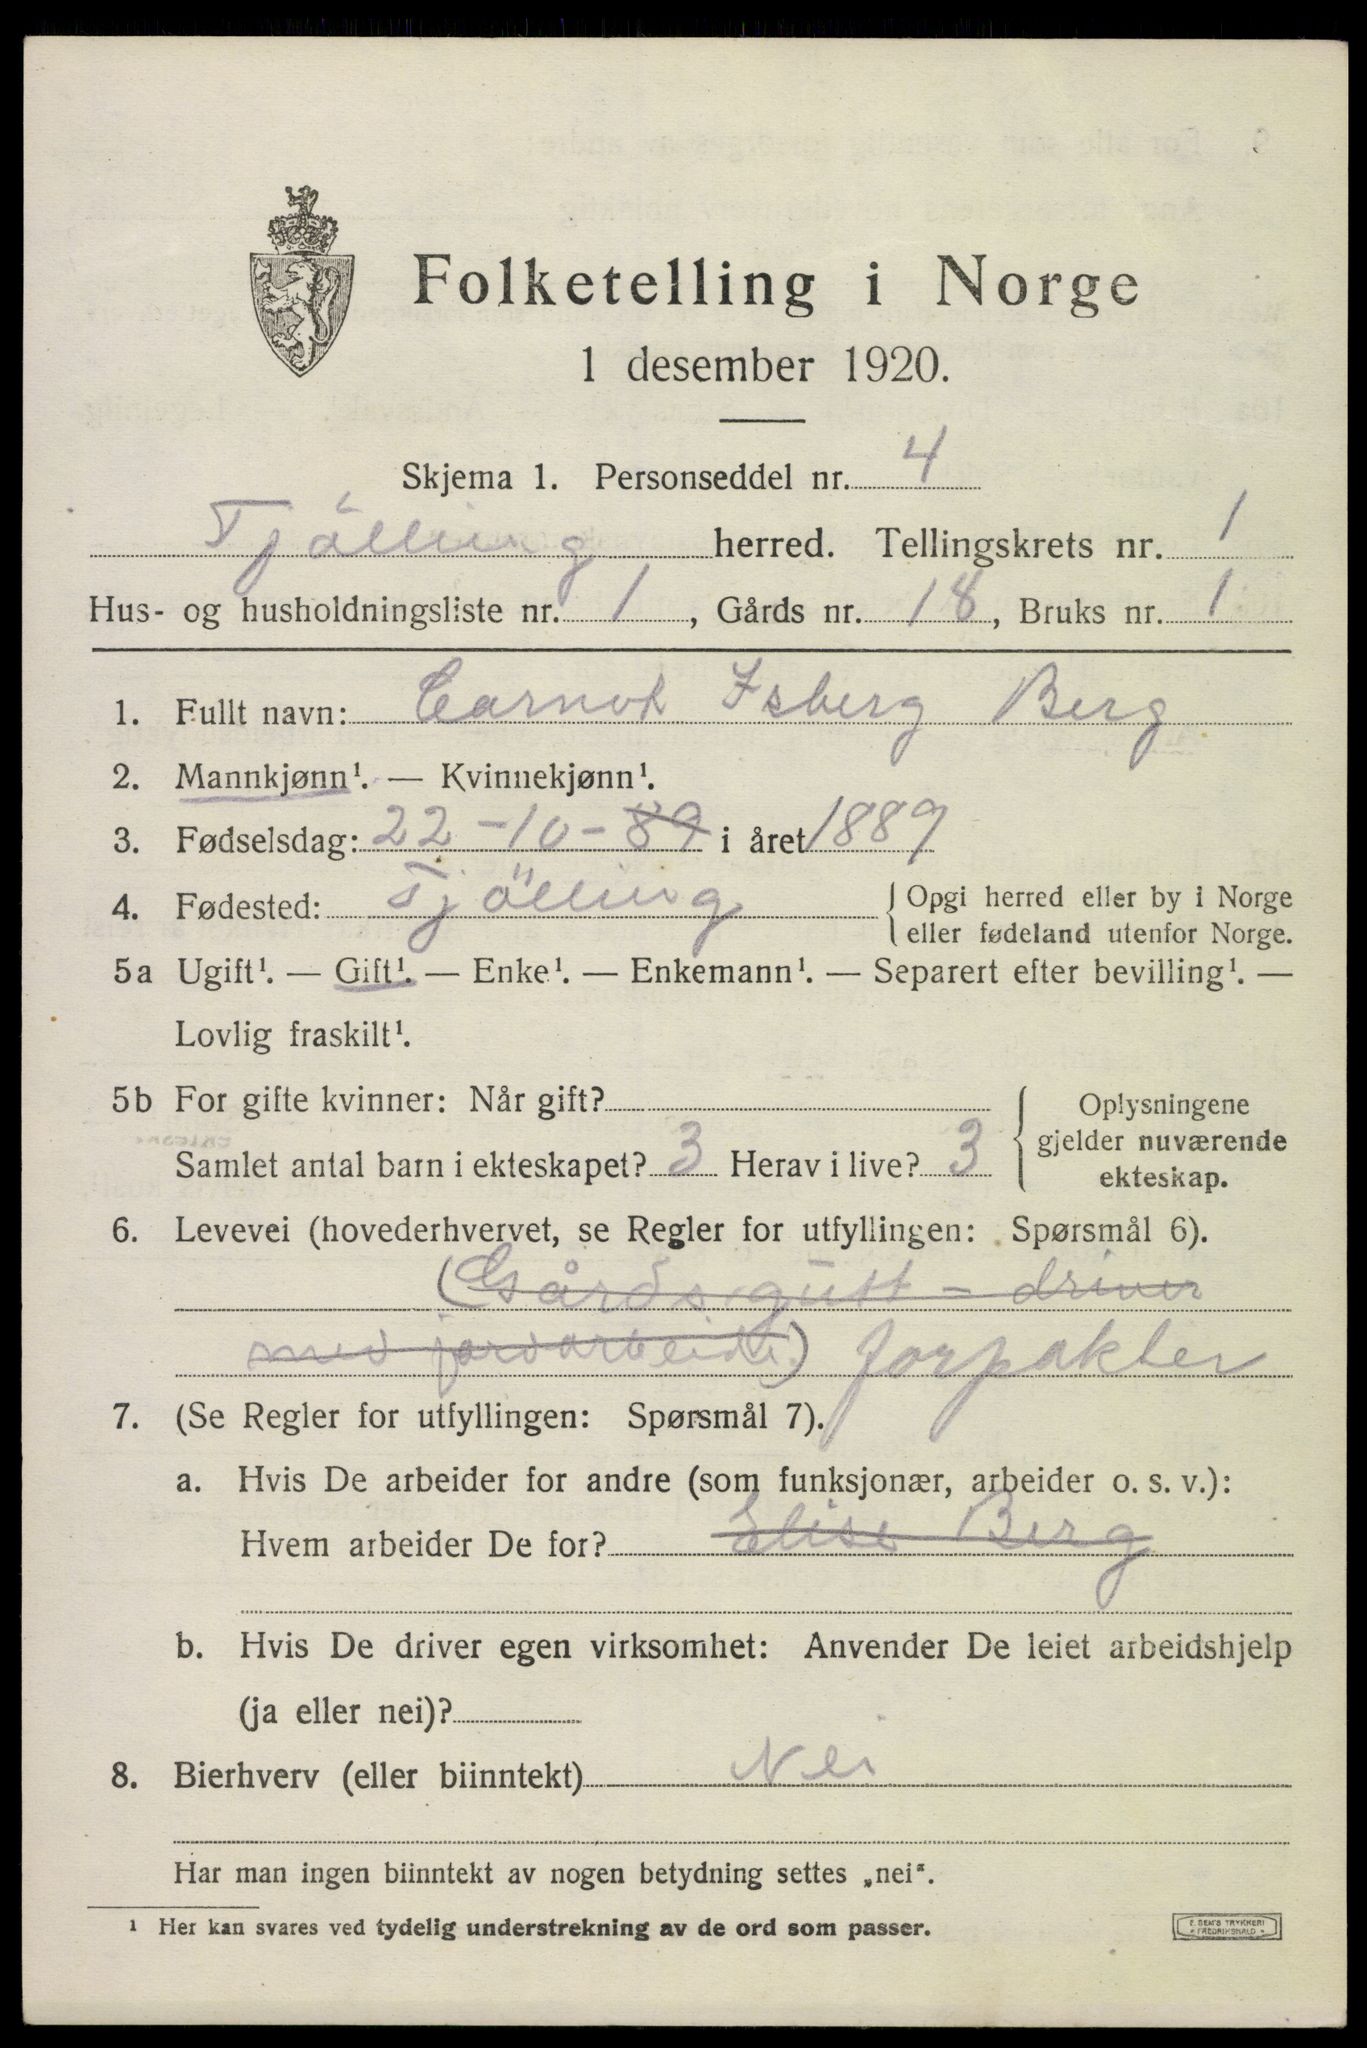 Folketelling i Norge
1 desember 1920.
Skjema 1. Personseddel nr. 4
Tjölling herred. Tellingskrets nr. 1
Hus- og husholdningsliste nr. 1, Gårds nr. 18, Bruks nr. 1
1. Fullt navn: Carnot Isberg Berg
2. Mannkjønn¹. — Kvinnekjønn¹.
3. Fødselsdag: 22-10-89 i året 1889
4. Fødested: Tjölling { Opgi herred eller by i Norge
eller fødeland utenfor Norge.
5a Ugift¹. — Gift¹. — Enke¹. — Enkemann¹. — Separert efter bevilling¹. —
Lovlig fraskilt¹.
5b For gifte kvinner: Når gift?
Samlet antal barn i ekteskapet? 3 Herav i live? 3
{ Oplysningene
gjelder nuværende
ekteskap.
6. Levevei (hovederhvervet, se Regler for utfyllingen: Spørsmål 6).
(Gårdsgutt - driver
med jordarbeide) forpakter
7. (Se Regler for utfyllingen: Spørsmål 7).
a. Hvis De arbeider for andre (som funksjonær, arbeider o. s. v.):
Hvem arbeider De for? Elise Berg
b. Hvis De driver egen virksomhet: Anvender De leiet arbeidshjelp
(ja eller nei)?
8. Bierhverv (eller biinntekt) Nei
Har man ingen biinntekt av nogen betydning settes „nei".
¹ Her kan svares ved tydelig understrekning av de ord som passer.
E. SEM'S TRYKKERI
FREDRIKSHALD